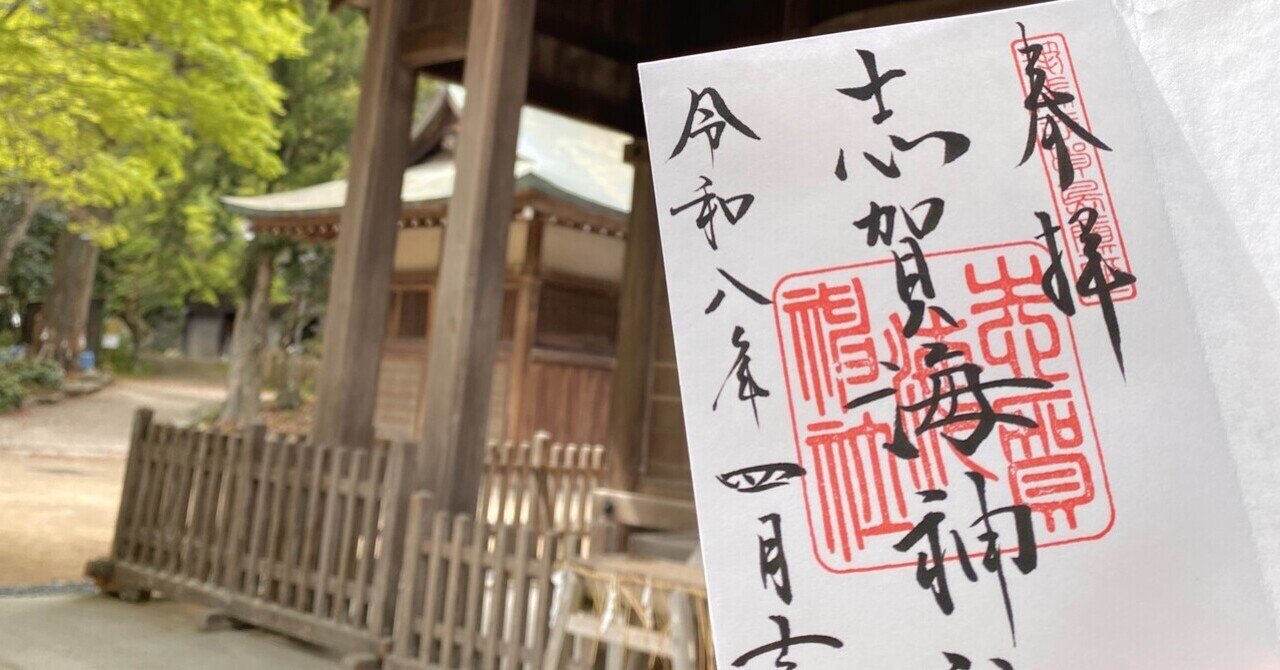 奉拝
志賀海神社
令和八年四月吉
志賀
海神社